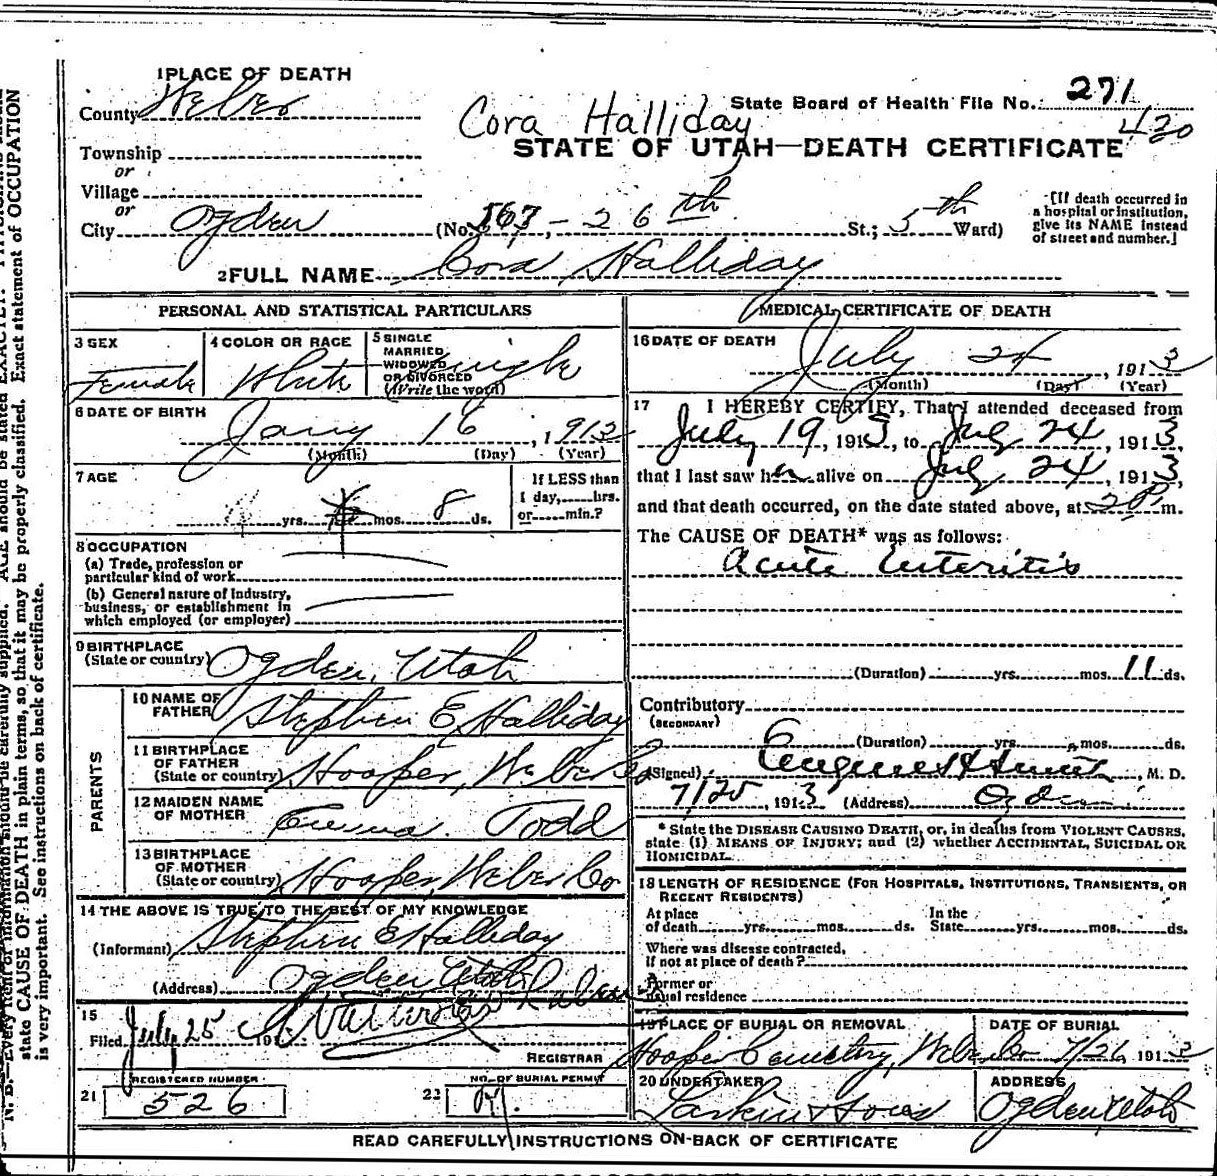 1 PLACE OF DEATH
County Weber
State Board of Health File No. 271
430
Cora Halliday
Township
STATE OF UTAH—DEATH CERTIFICATE
or
Village
or
City Ogden (No. 567 - 26th St.; 5th Ward)
[If death occurred in
a hospital or institution,
give its NAME instead
of street and number.]
2 FULL NAME Cora Halliday
PERSONAL AND STATISTICAL PARTICULARS
3 SEX
Female
4 COLOR OR RACE
White
5 SINGLE
MARRIED
WIDOWED
OR DIVORCED
(Write the word)
Single
6 DATE OF BIRTH
Jany 16, 1912
(Month) (Day) (Year)
7 AGE
yrs. mos. 8 ds.
If LESS than
1 day, hrs.
or min.?
8 OCCUPATION
(a) Trade, profession or
particular kind of work
(b) General nature of industry,
business, or establishment in
which employed (or employer)
9 BIRTHPLACE
(State or country) Ogden, Utah
PARENTS
10 NAME OF
FATHER Stephen E Halliday
11 BIRTHPLACE
OF FATHER
(State or country) Hooper, Weber Co
12 MAIDEN NAME
OF MOTHER Emma Todd
13 BIRTHPLACE
OF MOTHER
(State or country) Hooper, Weber Co
14 THE ABOVE IS TRUE TO THE BEST OF MY KNOWLEDGE
(Informant) Stephen E Halliday
(Address) Ogden Utah
15
Filed July 25 191
REGISTRAR
21 REGISTERED NUMBER
526
22 NO. OF BURIAL PERMIT
MEDICAL CERTIFICATE OF DEATH
16 DATE OF DEATH
July 24, 1913
(Month) (Day) (Year)
17 I HEREBY CERTIFY, That I attended deceased from
July 19, 1913, to July 24, 1913,
that I last saw her alive on July 24, 1913,
and that death occurred, on the date stated above, at 2 P m.
The CAUSE OF DEATH* was as follows:
Acute Enteritis
(Duration) yrs. mos. 11 ds.
Contributory
(SECONDARY)
(Duration) yrs. mos. ds.
(Signed) , M. D.
7/25, 1913 (Address) Ogden
* State the DISEASE CAUSING DEATH, or, in deaths from VIOLENT CAUSES,
state (1) MEANS OF INJURY; and (2) whether ACCIDENTAL, SUICIDAL OR
HOMICIDAL.
18 LENGTH OF RESIDENCE (FOR HOSPITALS, INSTITUTIONS, TRANSIENTS, OR
RECENT RESIDENTS)
At place
of death yrs. mos. ds.
In the
State yrs. mos. ds.
Where was disease contracted,
if not at place of death?
Former or
usual residence
19 PLACE OF BURIAL OR REMOVAL
Hooper Cemetery, Weber Co
DATE OF BURIAL
7/26, 1913
20 UNDERTAKER
Larkin & Sons
ADDRESS
Ogden, Utah
READ CAREFULLY INSTRUCTIONS ON BACK OF CERTIFICATE
state CAUSE OF DEATH in plain terms, so that it may be properly classified. Exact statement of OCCUPATION
is very important. See instructions on back of certificate.